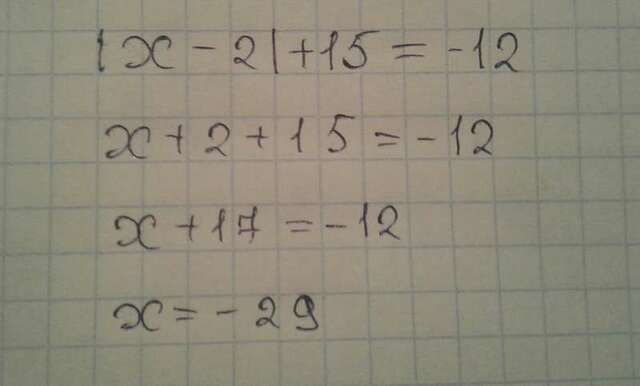 |x - 2| + 15 = -12
x + 2 + 15 = -12
x + 17 = -12
x = -29